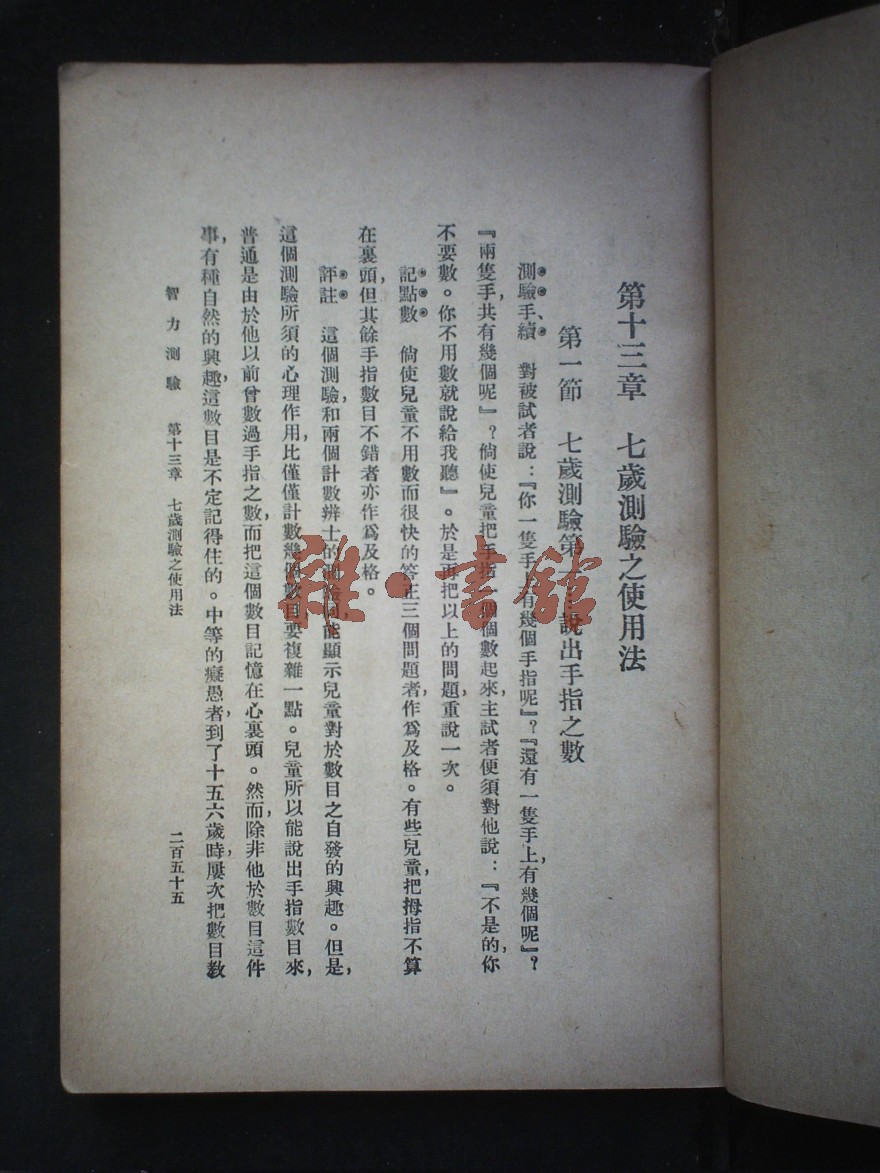 第十三章　七歲測驗之使用法
第一節　七歲測驗第　說出手指之數
測驗手續　對被試者說：『你一隻手上有幾個手指呢』？『還有一隻手上，有幾個呢』？
『兩隻手，共有幾個呢』？倘使兒童把手指一個個數起來，主試者便須對他說：『不是的，你
不要數。你不用數就說給我聽』。於是再把以上的問題，重說一次。
記點數　倘使兒童不用數而很快的答正三個問題者，作爲及格。有些兒童，把拇指不算
在裏頭，但其餘手指數目不錯者亦作爲及格。
評註　這個測驗，和兩個計數辨士的測驗，同能顯示兒童對於數目之自發的興趣。但是，
這個測驗所須的心理作用，比僅僅計數幾個數目要複雜一點。兒童所以能說出手指數目來，
普通是由於他以前曾數過手指之數，而把這個數目記憶在心裏頭。然而，除非他於數目這件
事，有種自然的興趣，這數目是不定記得住的。中等的癡愚者，到了十五六歲時，屢次把數目教
智力測驗　第十三章　七歲測驗之使用法　二百五十五
雜·書館